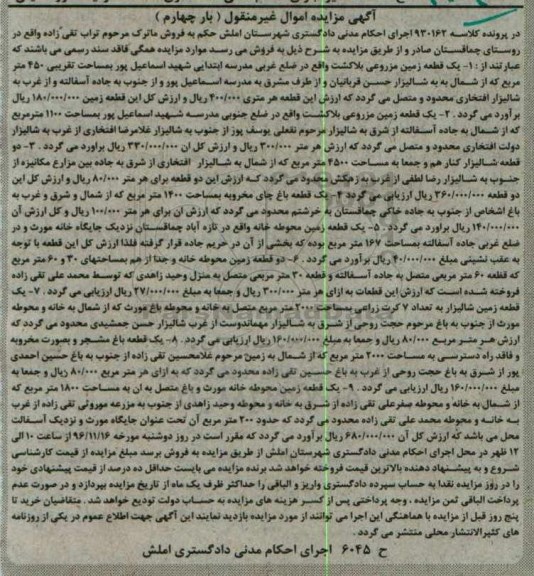 آگهی مزایده اموال غیرمنقول ( بار چهارم )
در پرونده کلاسه ۹۳۰۱۶۲ اجرای احکام مدنی دادگستری شهرستان املش حکم به فروش ماترک مرحوم تراب تقی زاده واقع در
روستای چماقستان صادر و از طریق مزایده به شرح ذیل به فروش می رسد موارد مزایده همگی فاقد سند رسمی می باشند که
عبارتند از : ۱- یک قطعه زمین مزروعی بلاکشت واقع در ضلع غربی مدرسه ابتدایی شهید اسماعیل پور بمساحت تقریبی ۴۵۰ متر
مربع که از شمال به به شالیزار حسن قربانیان و از طرف مشرق به مدرسه اسماعیل پور و از جنوب به جاده آسفالته و از غرب به
شالیزار افتخاری محدود و متصل می گردد که ارزش این قطعه هر متری ۴۰۰/۰۰۰ ریال و ارزش کل این قطعه زمین ۱۸۰/۰۰۰/۰۰۰ ریال
برآورد می گردد . ۲- یک قطعه زمین مزروعی بلاکشت واقع در ضلع جنوبی مدرسه شهید اسماعیل پور بمساحت ۱۱۰۰ مترمربع
که از شمال به جاده آسفالته از شرق به شالیزار مرحوم نعلی یوسف پوز از جنوب به شالیزار غلامرضا افتخاری از غرب به شالیزار
دولت افتخاری محدود و متصل می گردد که ارزش هر متر ۳۰۰/۰۰۰ ریال و ارزش کل ان ۳۳۰/۰۰۰/۰۰۰ ریال براورد می گردد . ۳- دو
قطعه شالیزار کنار هم و جمعا به مساحت ۴۵۰۰ متر مربع که از شمال به شالیزار افتخاری از شرق به جاده بین مزارع مکانیزه از
جنوب به شالیزار رضا لطفی از غرب به زهکش محدود می گردد که ارزش این دو قطعه برای هر متر ۸۰/۰۰۰ ریال و ارزش کل این
دو قطعه ۳۶۰/۰۰۰/۰۰۰ ریال ارزیابی می گردد ۴- یک قطعه باغ چای مخروبه بمساحت ۱۴۰۰ متر مربع که از شمال و شرق و غرب به
باغ اشخاص از جنوب به جاده خاکی چماقستان به خرشتم محدود می گردد که ارزش ان برای هر متر ۱۰۰/۰۰۰ ریال و کل ارزش آن
۱۴۰/۰۰۰/۰۰۰ ریال براورد می گردد . ۵- یک قطعه زمین محوطه خانه واقع در تازه آباد چماقستان نزدیک جایگاه خانه مورث و در
ضلع غربی جاده آسفالته بمساحت ۱۶۷ متر مربع بوده که بخشی از آن در حریم جاده قرار گرفته فلذا ارزش کل این قطعه با توجه
به عقب نشینی مبلغ ۴۰/۰۰۰/۰۰۰ ریال برآورد می گردد . ۶- دو قطعه زمین محوطه خانه و جدا از هم بمساحتهای ۳۰ و ۶۰ متر مربع
که قطعه ۶۰ متر مربعی متصل به جاده آسفالته و قطعه ۳۰ متر مربعی متصل به منزل وحید زاهدی که توسط محمد علی تقی زاده
فروخته شده است که ارزش این قطعات به ازای هر متر ۳۰۰/۰۰۰ ریال و جمعا به مبلغ ۲۷/۰۰۰/۰۰۰ ریال ارزیابی می گردد . ۷- یک
قطعه زمین شالیزار به تعداد ۷ کرت زراعی بمساحت ۲۰۰۰ متر مربع متصل به خانه و محوطه باغ مورث که از شمال به خانه و محوطه
مورث از جنوب به باغ مرحوم حجت روحی از شرق به شالیزار مهماندوست از غرب شالیزار حسن جمشیدی محدود می گردد که
ارزش هر متر مربع ۸۰/۰۰۰ ریال و جمعا به مبلغ ۱۶۰/۰۰۰/۰۰۰ ریال ارزیابی می گردد . ۸- یک قطعه باغ مشجر و بصورت مخروبه
و فاقد راه دسترسی به مساحت ۲۰۰۰ متر مربع که از شمال به زمین مرحوم غلامحسین تقی زاده از جنوب به باغ حسین احمدی
پور از شرق به باغ حجت روحی از غرب به باغ حسین تقی زاده محدود می گردد که به ازای هر متر مربع ۸۰/۰۰۰ ریال و جمعا به
مبلغ ۱۶۰/۰۰۰/۰۰۰ ریال ارزیابی می گردد . ۹- یک قطعه زمین محوطه خانه مورث و باغ متصل به ان به مساحت ۱۸۰۰ متر مربع که
از شمال به خانه و محوطه صفرعلی تقی زاده از شرق به خانه و محوطه وحید زاهدی از جنوب به مزرعه موروثی تقی زاده از غرب
به خانه و محوطه محمد علی تقی زاده محدود می گردد که حدود ۲۰۰ متر مربع آن تحت عنوان جایگاه مورث و نزدیک آسفالت
محل می باشد که ارزش کل آن ۶۸۰/۰۰۰/۰۰۰ ریال برآورد می گردد که مقرر است در روز دوشنبه مورخه ۹۶/۱۱/۱۶ از ساعت ۱۰ الی
۱۲ ظهر در محل اجرای احکام مدنی دادگستری شهرستان املش از طریق مزایده به فروش برسد مبلغ مزایده از قیمت کارشناسی
شروع و به پیشنهاد دهنده بالاترین قیمت فروخته خواهد شد برنده مزایده می بایست حداقل ده درصد از قیمت پیشنهادی خود
را در روز مزایده نقدا به حساب سپرده دادگستری واریز و الباقی را حداکثر ظرف یک ماه از تاریخ مزایده بپردازد و در صورت عدم
پرداخت الباقی ثمن مزایده ، وجه پرداختی پس از کسر هزینه های مزایده به حساب دولت تودیع خواهد شد . متقاضیان خرید تا
پنج روز قبل از مزایده با هماهنگی این اجرا می توانند از مورد مزایده بازدید نمایند این آگهی جهت اطلاع عموم در یکی از روزنامه
های کثیرالانتشار محلی منتشر می گردد .
ح ۶۰۴۵ اجرای احکام مدنی دادگستری املش